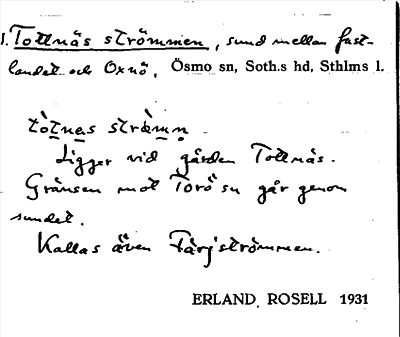 1. Tottnäs strömmen, sund mellan fast-
landet och Oxnö, Ösmo sn, Soth.s hd, Sthlms l.
tòtnas stræ̀mn
Ligger vid gården Tottnäs.
Gränsen mot Torö sn går genom
sundet.
Kallas även Färjströmmen.
ERLAND ROSELL 1931